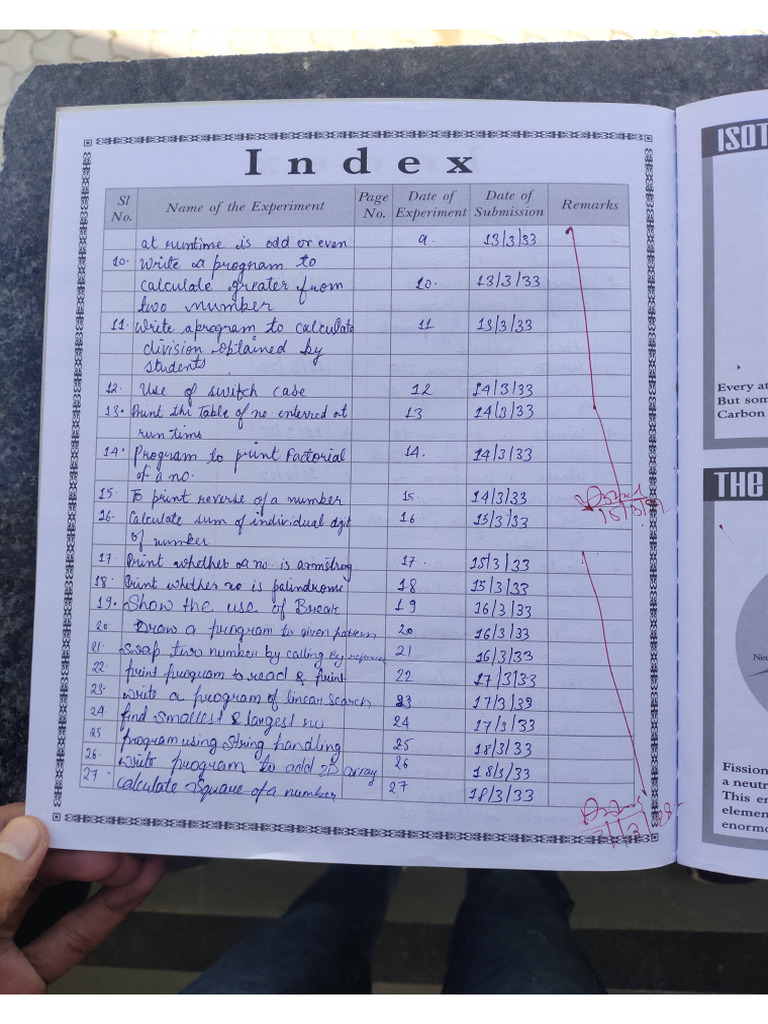 Index
Sl No. Name of the Experiment Page No. Date of Experiment Date of Submission Remarks
at runtime is odd or even 9. 13/3/33
10. Write a program to
calculate greater from 10. 13/3/33
two number
11. Write a program to calculate 11 13/3/33
division obtained by
students
12. Use of switch case 12 14/3/33
13. Print thi Table of no enterred at 13 14/3/33
run tims
14. Program to print Factorial 14. 14/3/33
of a no.
15. To print reverse of a number 15. 14/3/33
16. Calculate sum of individual digit 16. 15/3/33
of number
17. Print whether a no. is armstrong 17. 15/3/33
18. Print whether no is palindrome 18 15/3/33
19. Show the use of Break 19 16/3/33
20 Draw a program to given pattern 20 16/3/33
21. swap two number by calling By 21 16/3/33
22. print program to read & print 22 17/3/33
23. write a program of linear search 23 17/3/33
24. find smallest & largest no 24 17/3/33
25 program using String handling 25 18/3/33
26. write program to add 2D array 26 18/3/33
27. calculate Square of a number 27 18/3/33
ISOT
Every at
But som
Carbon
THE
Neu
Fission
a neutr
This en
elemen
enormo